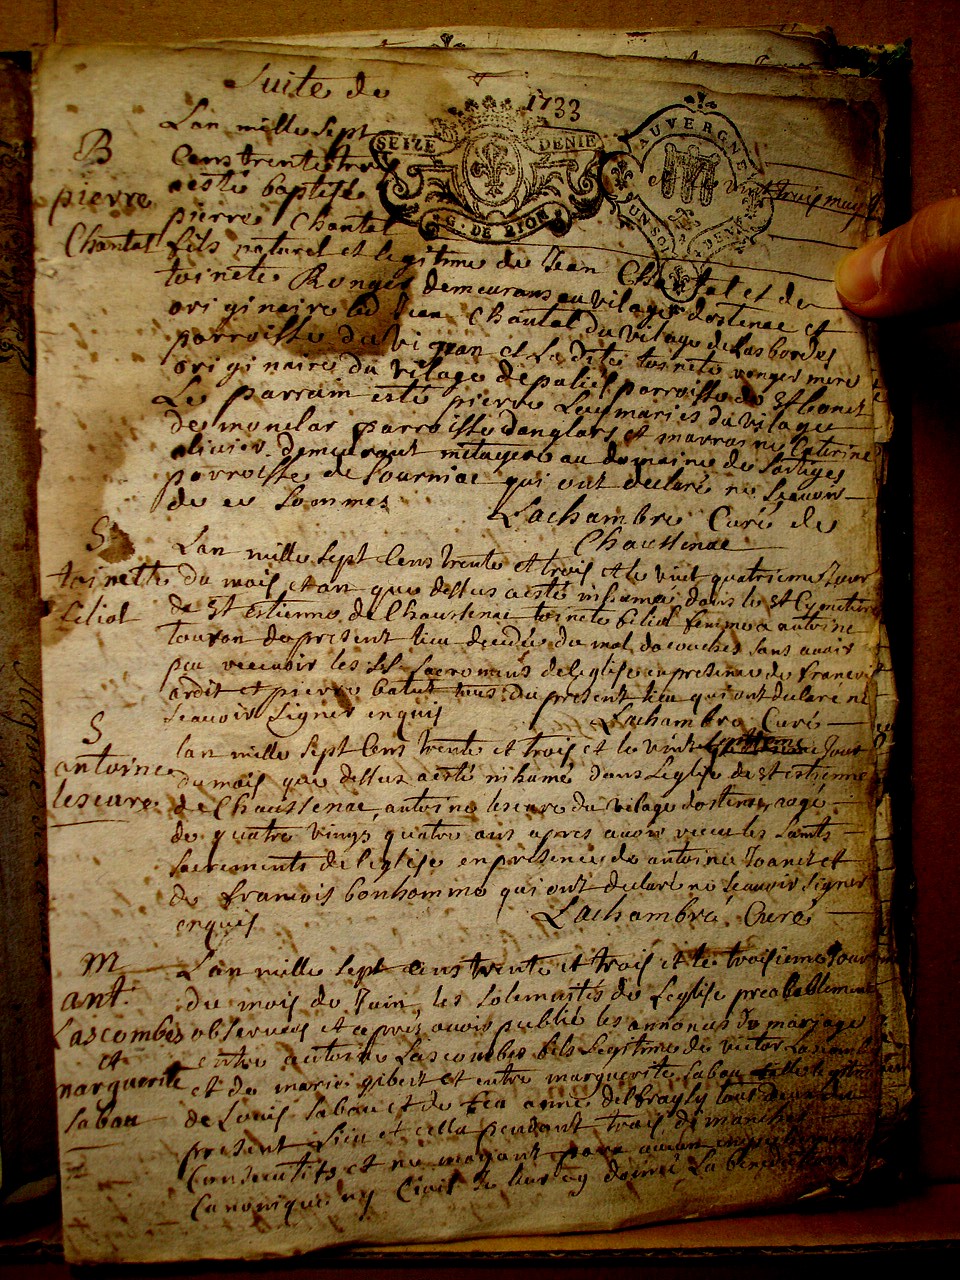 Suite de
1733
SEIZE DENIE
G. DE RION
AUVERGNE
UN SOL
DENIE
B
pierre
Chantal
Lan mille sept
Cens trente troi
vint truis may
aesté baptisé
pierre Chantal
fils naturel et legitime de Jean Chantal et de
toinete Ronges demeurans au vilage dostenac et
originaire led Jean Chantal du vilage de Lasbordes
parroisse du vigean et La dite toinete ronges mere
originaire du vilage de paliès parroisse de St bonet
Le parrain esté pierre Laymaries du vilage
de monclar parroisse danglars et marraine Caterine
olivier demeurant metayere au domaine de Sartiges
parroisse de Sourniac qui ont declaré ne Scavoir
de ce Sommes
Lachambre Curé de
Chaussenac
S
toinette
filiol
Lan mille sept Cens trente et trois et le vint quatrieme Jour
du mois et an que dessus aesté inhumée dans le St Cymetiere
de St Estienne de Chaussenac toinete filiol femme a antoine
touron du present lieu decedée du mal de couches sans avoir
peu recevoir les Sts Sacremens de leglise en presence de francois
ardit et pierre batut tous du present lieu qui ont declaré ne
Scavoir Signer enquis
Lachambre Curé
S
antoine
lescure
lan mille sept Cens trente et trois et le vint Jour
du mois que dessus aesté inhumé dans Leglise de St estienne
de Chaussenac, antoine lescure du vilage dostenac, agé
de quatre vings quatre ans apres avoir receu les Saints
Sacrements de leglise en presence de antoine Joanet et
de francois bonhomme qui ont declaré ne Scavoir Signer
enquis
Lachambre Curé
m
ant.
Lascombes
et
marguerite
Sabau
Lan mille sept Cens trente et trois et le troisieme Jour
du mois de Juin, les Solemnités de Leglise prealablement
observees et apres avoir publié les annonces de mariage
entre antoine Lascombes fils Legitime de victor Lascombes
et de marie gibert et entre marguerite Sabau fille legitime
de Louis Sabau et de feu anne delfrayssy tous deux du
present Lieu et cella pendant trois dimanches
Consecutifs et ne mayant paru aucun empechement
Canonique ny Civil Je leur ay donné La benediction